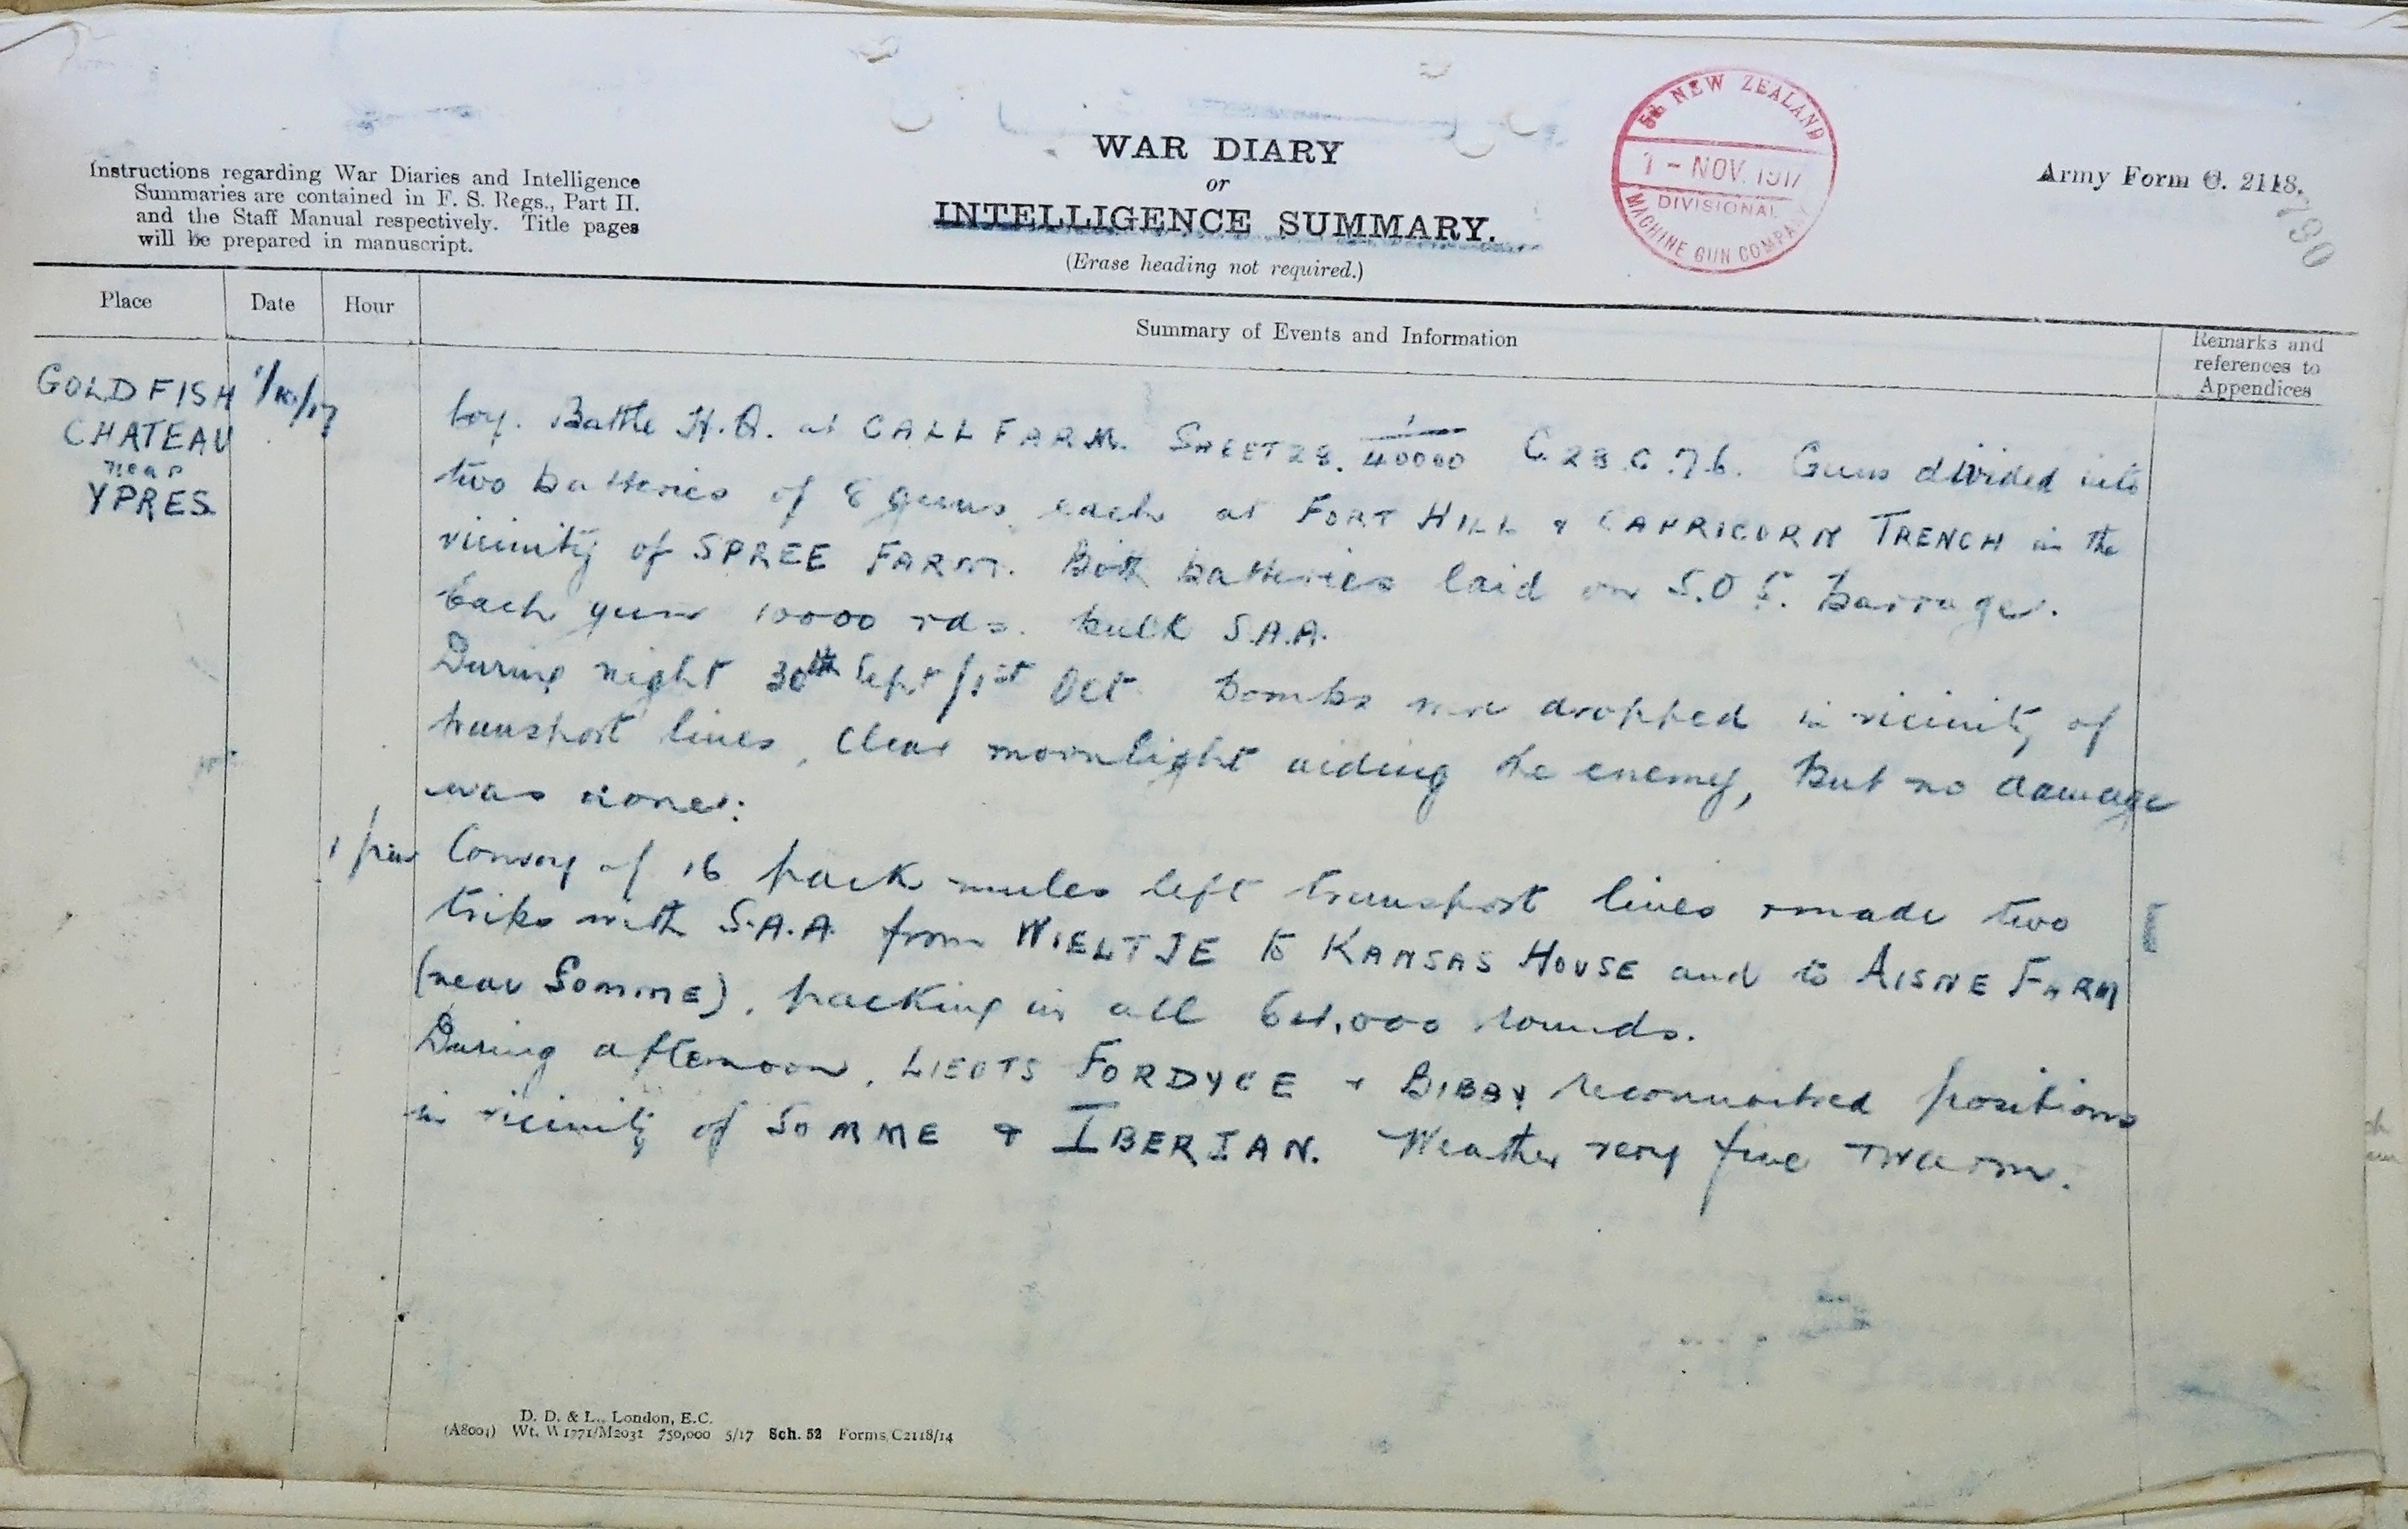 Instructions regarding War Diaries and Intelligence
Summaries are contained in F. S. Regs., Part II.
and the Staff Manual respectively. Title pages
will be prepared in manuscript.
WAR DIARY
or
INTELLIGENCE SUMMARY.
(Erase heading not required.)
5th NEW ZEALAND
1 - NOV. 1917
DIVISIONAL
MACHINE GUN COMPANY
Army Form C. 2118.
790
Place
Date
Hour
Summary of Events and Information
Remarks and
references to
Appendices
GOLDFISH
CHATEAU
near
YPRES
1/10/17
Coy. Battle H.Q. at CALL FARM. SHEET 28. 1/40000 C.23.C.7.6. Guns divided into
two batteries of 8 guns each at FORT HILL & CAPRICORN TRENCH in the
vicinity of SPREE FARM. Both batteries laid on S.O.S. Barrage.
Each gun 10000 rds. bulk S.A.A.
During night 30th Sept/1st Oct bombs were dropped in vicinity of
transport lines, clear moonlight aiding the enemy, but no damage
was done.
1 pm
Convoy of 16 pack mules left transport lines & made two
trips with S.A.A. from WIELTJE to KANSAS HOUSE and to AISNE FARM
(near SOMME), packing in all 64,000 rounds.
During afternoon, LIEUTS FORDYCE & BIBBY reconnoitred positions
in vicinity of SOMME & IBERIAN. Weather very fine & warm.
D. D. & L., London, E.C.
(A8004) Wt. W1771/M2031 750,000 5/17 Sch. 52 Forms/C2118/14